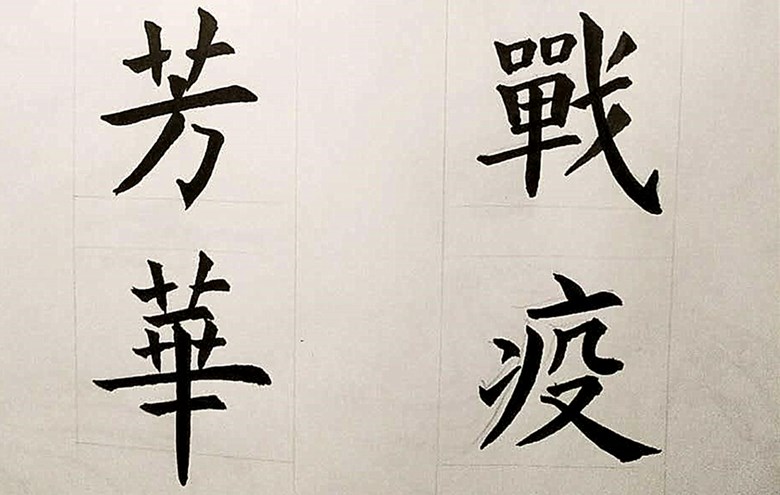 戰疫
芳華